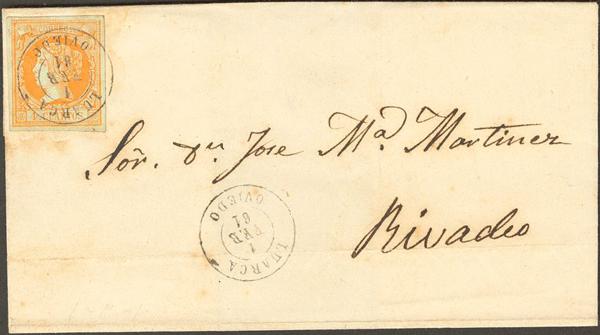 LUARCA
1
FEB
61
OVIEDO
Sór. Dn Jose Ma. Martinez
Rivadeo
LUARCA
1
FEB
61
OVIEDO